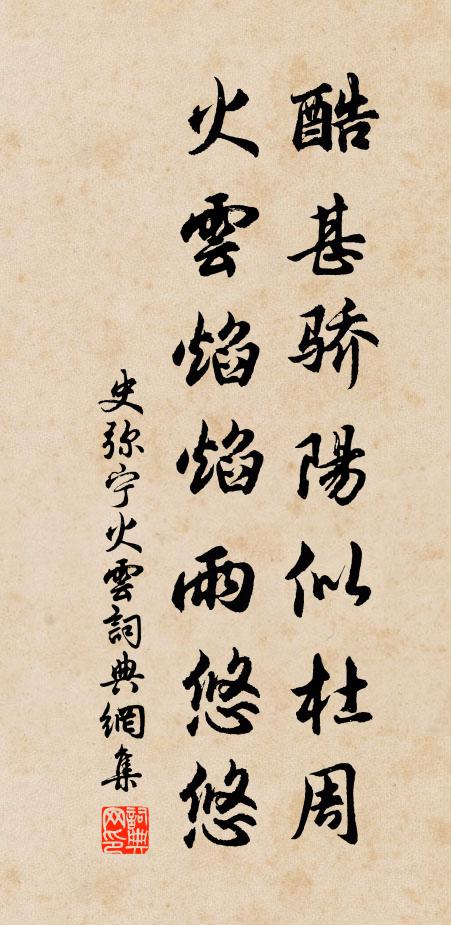 酷甚骄陽似杜周
火雲焰焰雨悠悠
史弥宁火雲詞典網集
詞典网印